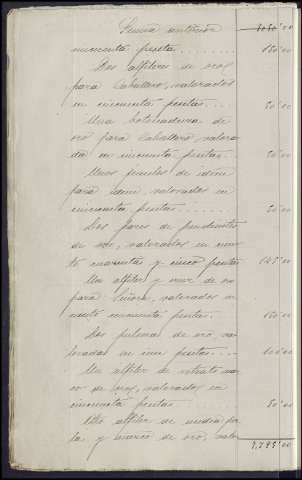 Suma anterior 8050'00
cincuenta pesetas 150'00
Dos alfileres de oro,
para Caballero, valorados
en cincuenta pesetas 50'00
Una botonadura de
oro para Caballero, valora
da en cincuenta pesetas 50'00
Unos gemelos de idem
para idem, valorados en
cincuenta pesetas 50'00
Dos pares de pendientes
de oro, valorados en cien
to cuarenta y cinco pesetas 145'00
Un alfiler y cruz de oro
para Señora, valorados en
ciento cincuenta pesetas 150'00
Dos pulseras de oro, va
loradas en cien pesetas 100'00
Un alfiler de retrato mar
co de oro, valorado en
cincuenta pesetas 50'00
Otro alfiler de media per
la y marco de oro, valo
8,795'00